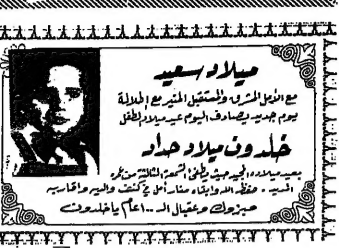 ميلاد سعيد
مع الأمل المشرق والمستقبل المنير مع اطلالة
يوم جديد يصادف اليوم عيد ميلاد الطفل
خلدون ميلاد حداد
بعيد ميلاده المجيد حيث يطفئ الشمعة الثالثة من عمره
المديد . حفظه الله وابقاه منار أمل في كنف والديه واقاربه
مبروك وعقبال الـ ١٠٠ عام يا خلدون